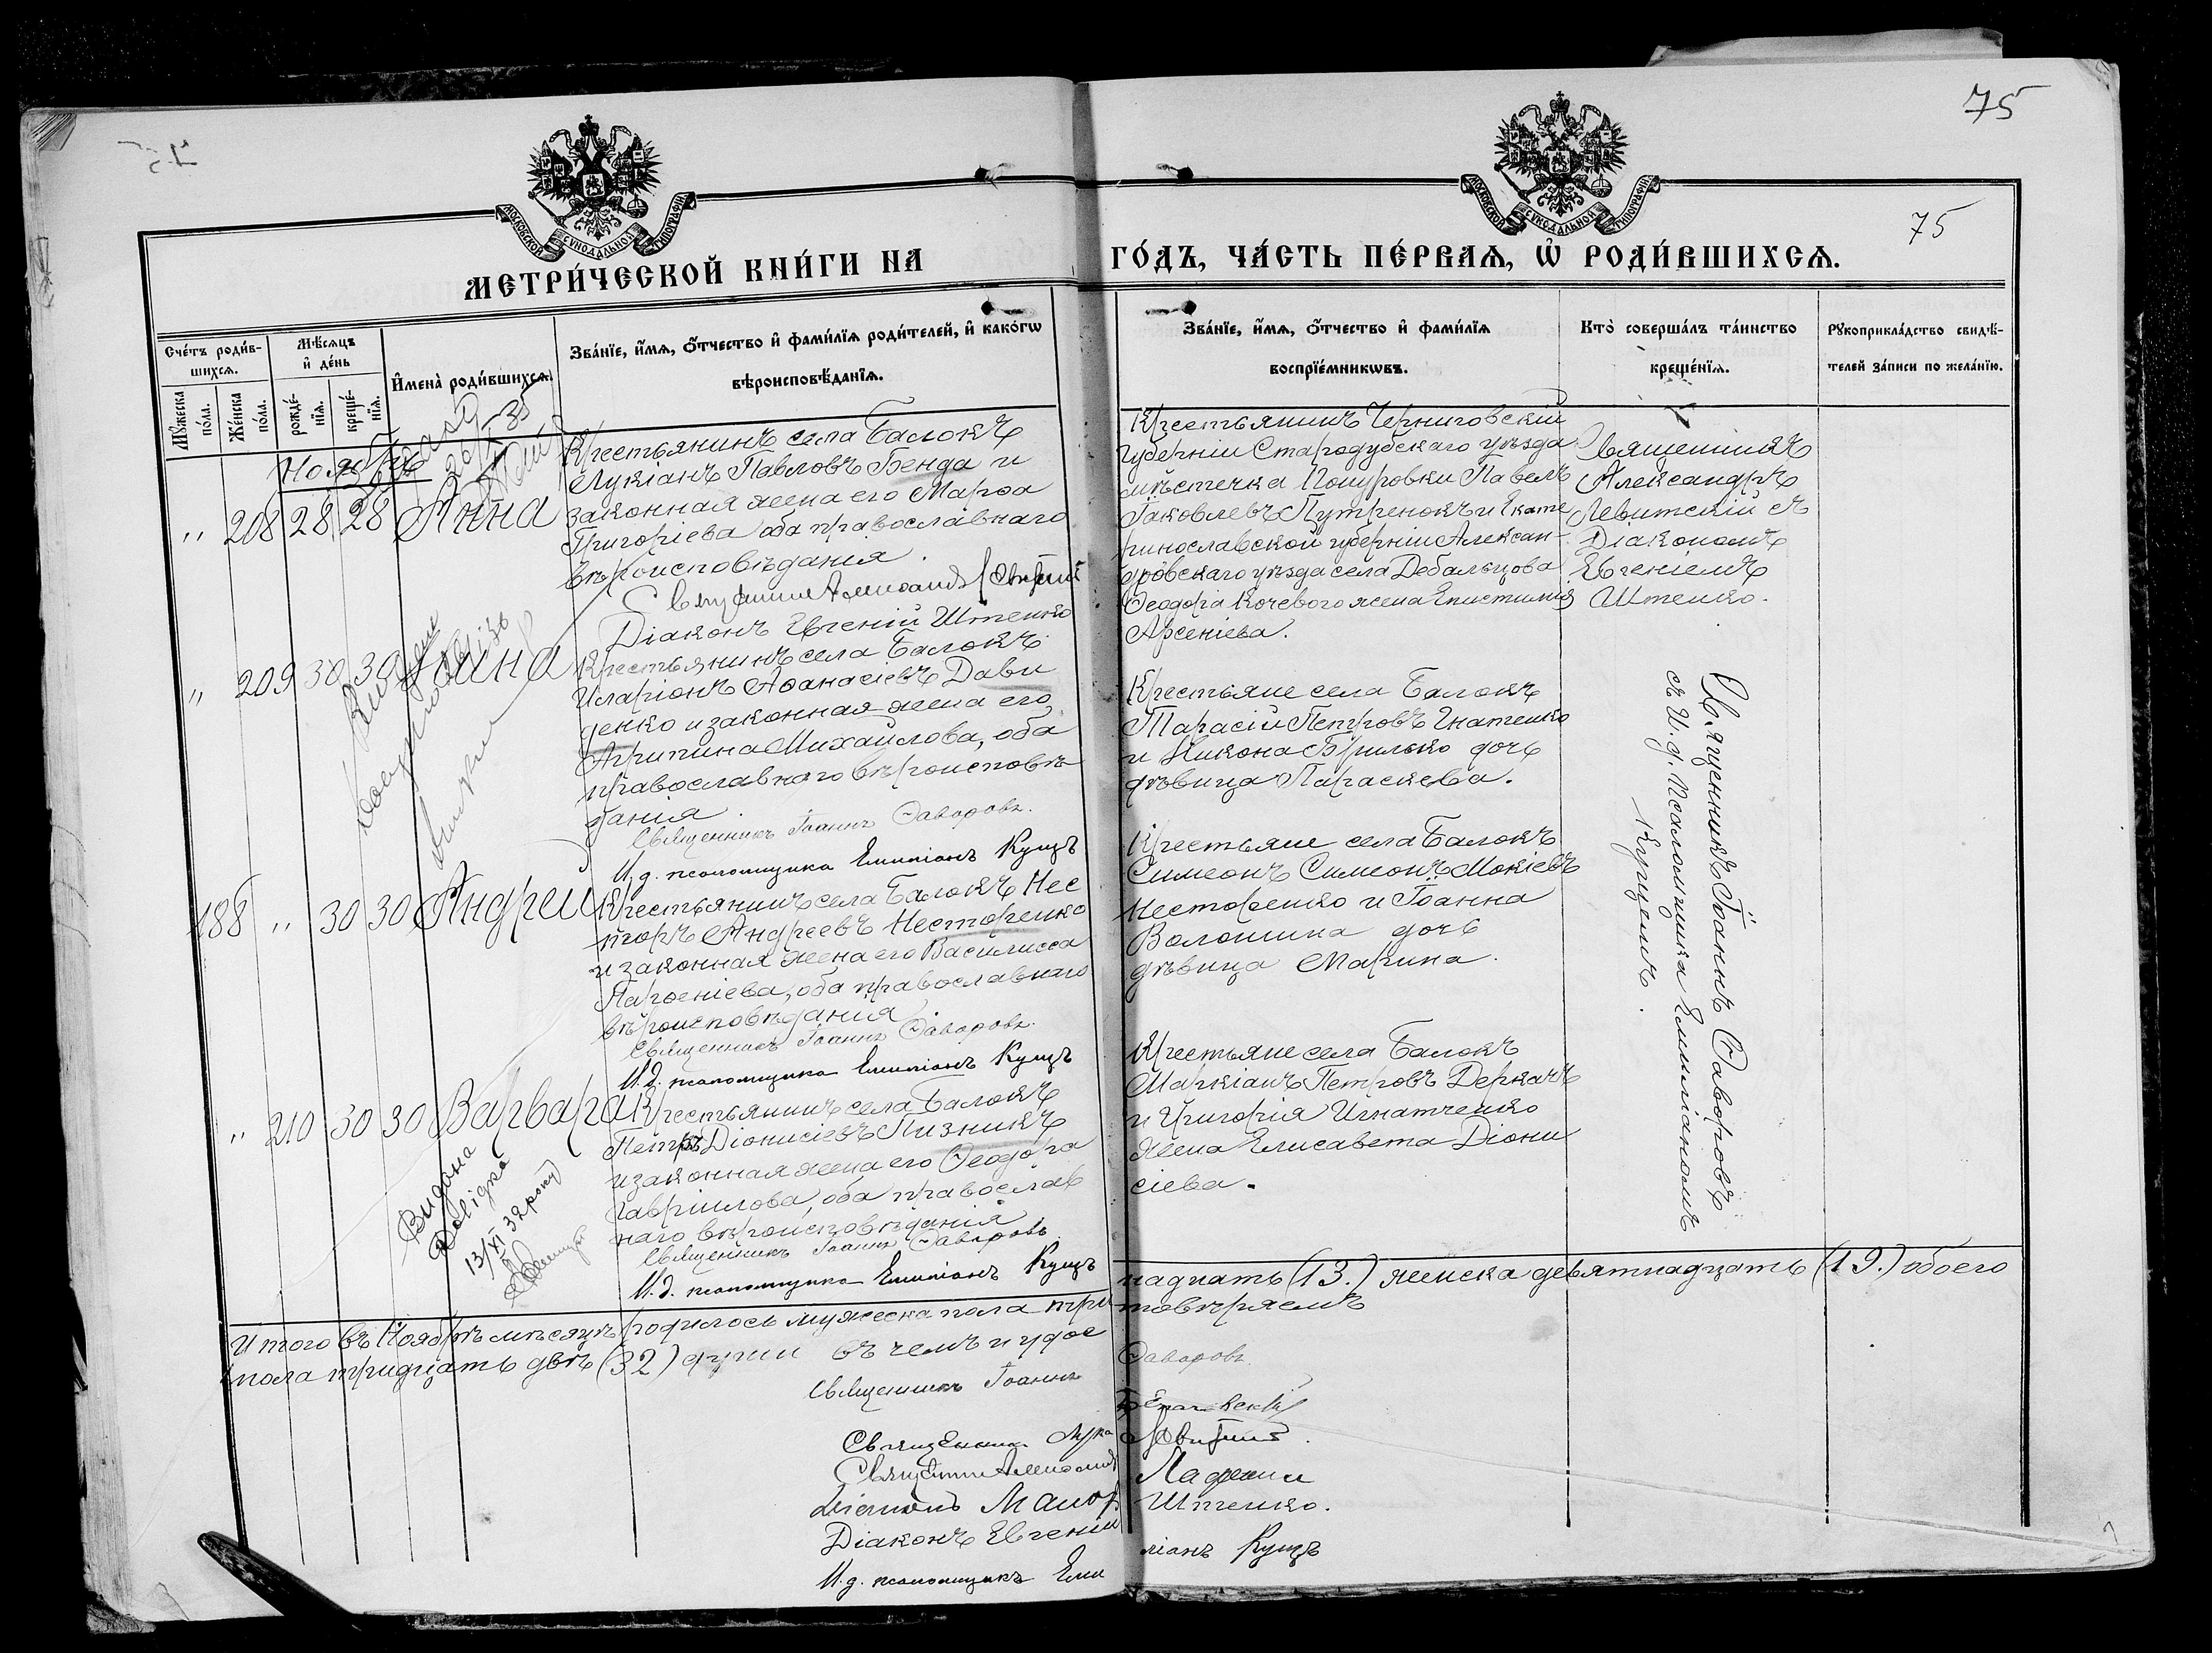 75
75
МОСКОВСКОЙ СУНОДАЛЬНОЙ ТИПОГРАФІИ
МОСКОВСКОЙ СУНОДАЛЬНОЙ ТИПОГРАФІИ
МЕТРИ́ЧЕСКОЙ КНИ́ГИ НА ГО́ДЪ, ЧА́СТЬ ПЕ́РВАѦ, Ѡ҆ РОДИ́ВШИХСѦ.
Сче́тъ роди́в-
шихсѧ.
Мꙋ́жеска по́ла.
Же́нска по́ла.
Мѣ́сѧцъ
и҆ де́нь
рожде́-
нїѧ.
креще́-
нїѧ.
И҆мена̀ роди́вшихсѧ.
Зва́нїе, и҆́мѧ, ѻ҆́тчество и҆ фами́лїѧ роди́телей, и҆ како́гѡ
вѣроисповѣ́данїѧ.
Зва́нїе, и҆́мѧ, ѻ҆́тчество и҆ фами́лїѧ
воспрїе́мникѡвъ.
Кто̀ соверша́лъ та́инство
креще́нїѧ.
Рꙋкоприкла́дство свидѣ́-
телей за́писи по жела́нїю.
Ноябрь
" 208 28 28 Анна
Крестьянинъ села Балокъ
Лукіанъ Павловъ Бенда и
законная жена его Марѳа
Григоріева оба православнаго
вѣроисповѣданія.
Діаконъ Евгеній Штепко
Крестьянинъ Черниговскій
губерніи Стародубскаго уѣзда
мѣстечка Понуровки Павелъ
Іаковлевъ Путренокъ и Екате
ринославской губерніи Алексан-
дровскаго уѣзда села Дебальцова
Ѳеодора Кочевого жена Епистимія
Арсеніева.
Священникъ
Александръ
Левитскій съ
Діакономъ
Евгеніемъ
Штепко.
" 209 30 30
Крестьянинъ села Балокъ
Иларіонъ Аѳанасіевъ Дави
денко и законная жена его,
Агрипина Михайлова, оба
православнаго вѣроисповѣ
данія.
Священникъ Іоаннъ
И. д. псаломщика Емиліанъ Кущъ
Крестьяне села Балокъ
Тарасій Петровъ Игнатенко
и Никона Брилько дочь
дѣвица Параскева.
Священникъ Іоаннъ
съ И. д. Псаломщика Емиліаномъ
Кущемъ.
188 " 30 30 Андрей
Крестьянинъ села Балокъ Нес
торъ Андреевъ Несторенко
и законная жена его Василисса
Парѳеніева, оба православнаго
вѣроисповѣданія.
Священникъ Іоаннъ
И. д. псаломщика Емиліанъ Кущъ
Крестьяне села Балокъ
Симеонъ Симеон. Мокіевъ
Несторенко и Іоанна
Волошина дочь
дѣвица Марина.
" 210 30 30 Варвара
Крестьянинъ села Балокъ
Петръ Діонисіевъ Пизникъ
и законная жена его Ѳеодора
Гавріилова, оба православ
наго вѣроисповѣданія
Священникъ Іоаннъ
И. д. псаломщика Емиліанъ Кущъ
Крестьяне села Балокъ
Маркіанъ Петровъ Деркачъ
и Григорія Игнатченко
жена Елисавета Діони
сіева.
Видана
13/XI 32 року
Итого въ Ноябрѣ мѣсяцѣ родилось мужеска пола три надцать (13.) женска девятнадцать (19.) обоего
пола тридцать двѣ (32) души въ чемъ и удос товѣряемъ
Священникъ Іоаннъ
Священникъ Лука
Діаконъ
Діаконъ Евгеній Штепко.
И. д. псаломщика Еми ліанъ Кущъ